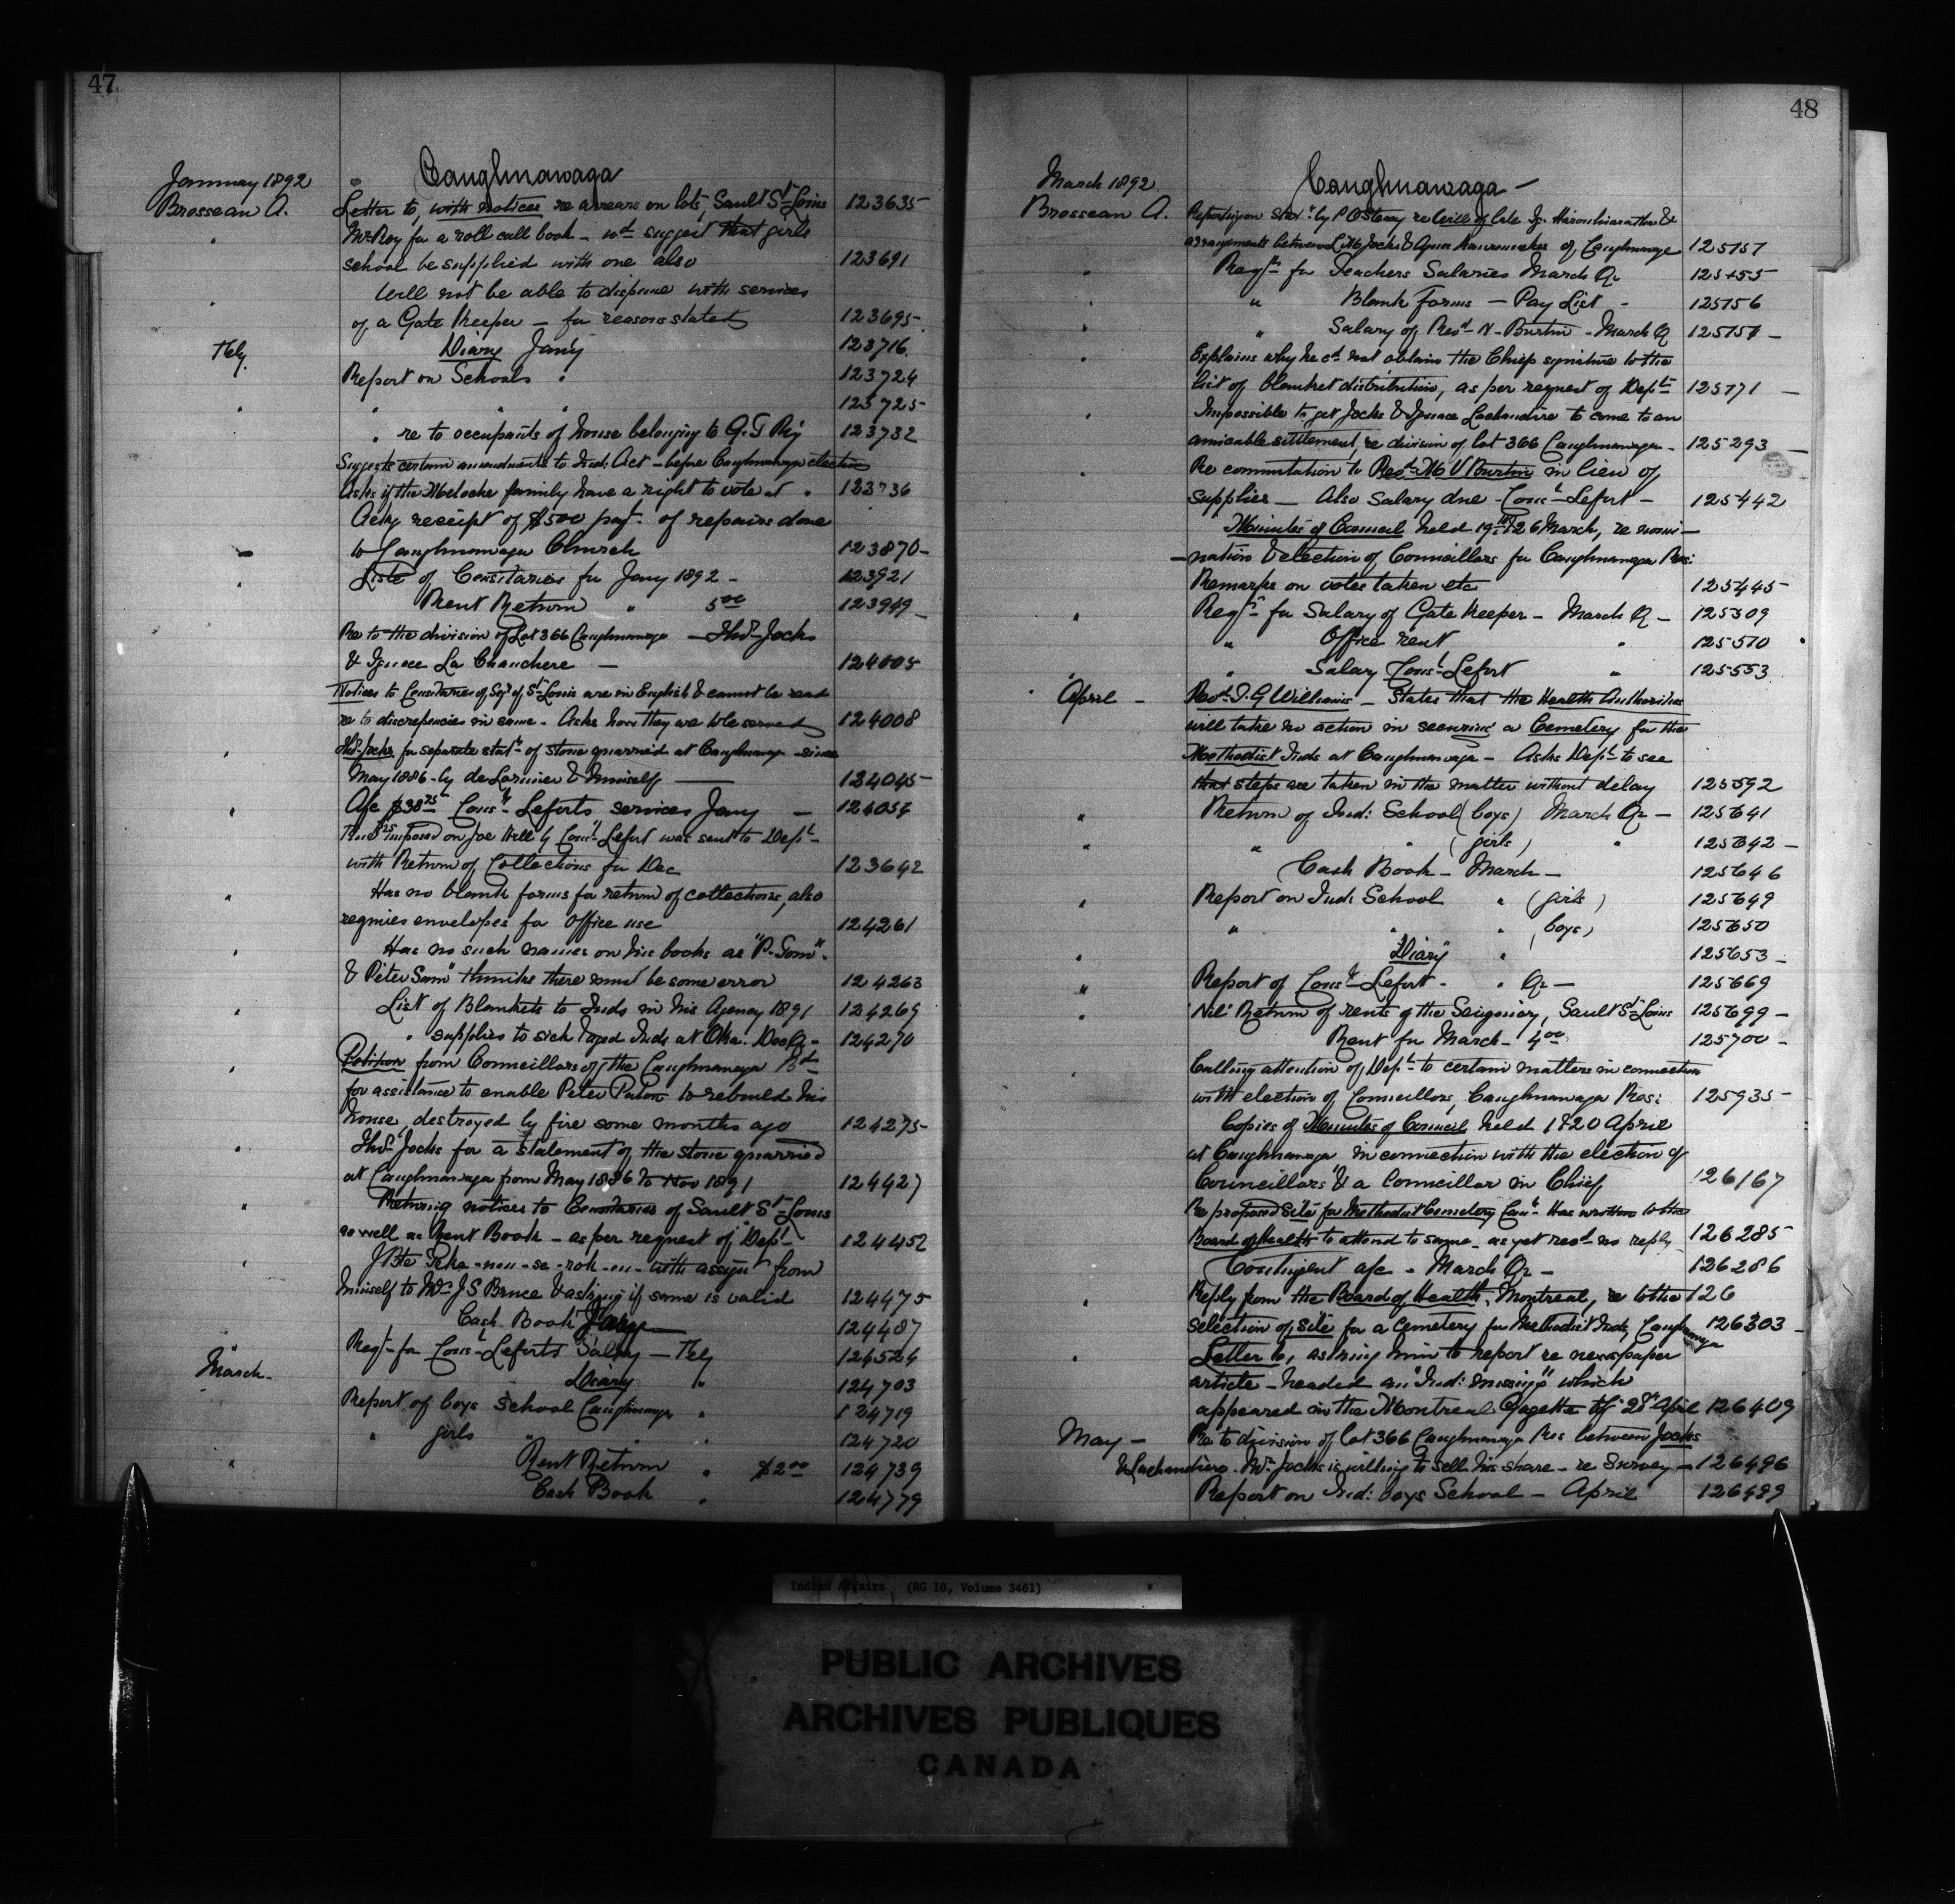 47
January 1892
Caughnawaga
Brosseau A.
Letter to, with notices re arrears on lots, Sault St. Louis 123635
Mr Roy for a roll call book – wd suggest that girls
school be supplied with one also 123691
Will not be able to dispense with services
of a Gate Keeper – for reasons stated 123695
Diary Jan'y 123716
Feby. Report on Schools " 123724
" " " 123725
" re to occupants of house belonging to G. T. R'y 123732
Suggests certain amendments to Ind. Act – before Caughnawaga election
Asks if the Meloche family have a right to vote at " 123736
Ackg receipt of $500 payt. of repairs done
to Caughnawaga Church 123870
Liste of Censitaires for Jany 1892 – 123921
Rent Return " 5.00 123949
Re to the division of Lot 366 Caughnawaga – Thos. Jocks
& Ignace La Chaudiere – 124005
Notices to Censitaires of Sgy of St. Louis are in English & cannot be read
re to discrepencies in same – Asks how they are to be served 124008
Thos. Jocks for separate statt. of stone quarried at Caughnawaga since
May 1886 – by de Lorimier & himself 124045
A/c $38.75 Const. Leforts services Jany – 124054
Fine imposed on Joe Hill by Const. Lefort was sent to Dept.
with Return of Collections for Dec 123642
Has no blank forms for return of collections, also
requires envelopes for office use 124261
Has no such names on his books as "P. Tom"
& Peter Sam" thinks there must be some error 124263
List of Blankets to Inds in his Agency 1891 124269
" supplies to sick & aged Inds at Oka. Dec Q – 124270
Petition from Councillors of the Caughnawaga Bd
for assistance to enable Peter to rebuild his
house, destroyed by fire some months ago 124275
Thos. Jocks for a statement of the stone quarried
at Caughnawaga from May 1886 to Nov 1891 124427
Returning notices to Censitaires of Sault St. Louis
as well as Rent Book – as per request of Dept. 124452
J Bte with assign't from
himself to Mr. J S Bruce & asking if same is valid 124475
Cash Book Jany 124487
Reqt. for Const. Leforts Salary – Feby
March – Diary " 124703
Report of boys School Caughnawaga " 124719
" girls " " " 124720
Rent Return " $2.00 124739
Cash Book " 124779
48
March 1892
Caughnawaga –
Brosseau A.
Reporting on by re Will of late
arrangements between Jocks & of Caughnawaga
Reqts. for Teachers Salaries March Qr
" Blank Forms – Pay List –
" Salary of Revd. N. Burtin – March Q
Explains why he cd. not obtain the Chiefs signature to the
list of blanket distribution, as per request of Dept.
Impossible to get Jocks & Ignace Lachaudière to come to an
amicable settlement, re division of lot 366 Caughnawaga – 125293
Re commutation to Revd. N V Burtin in lieu of
supplies – Also Salary due – Const. Lefort – 125442
Minutes of Council held 19th & 26 March, re nomi–
–nation & election of Councillors for Caughnawaga Res:
Remarks on votes taken etc 125445
Reqts. for Salary of Gate Keeper – March Q – 125509
" Office rent " 125510
" Salary Const. Lefort " 125553
April – Revd. T. G Williams – States that the Health Authorities
will take no action in securing a Cemetery for the
Methodist Inds at Caughnawaga – Asks Dept. to see
that steps are taken in the matter without delay 125592
Return of Ind: School (boys) March Qr – 125641
" " (girls) " 125642
Cash Book – March – 125646
Report on Ind: School " (girls) 125649
" " " (boys) 125650
Diary " 125653
Report of Const. Lefort – " Qr – 125669
'Nil' Return of rents of the Seigniory, Sault St. Louis 125699
Rent for March – 4.00 125700
Calling attention of Dept. to certain matters in connection
with election of Councillors, Caughnawaga Res: 125935
Copies of Minutes of Council held 1 & 20 April
at Caughnawaga in connection with the election of
Councillors & a Councillor in Chief 126167
Re proposed site for Methodist Cemetery Has written to the
Board of Health to attend to same – as yet recd. no reply 126285
Contingent a/c – March Qr – 126286
Reply from the Board of Health, Montreal, re to the 126
selection of site for a cemetery for Methodist Inds, Caughnawaga 126303
Letter to, asking him to report re newspaper
article – headed an "Ind: missing" which
appeared in the Montreal Gazette of 28th April 126409
May – Re to division of lot 366 Caughnawaga Res between Jocks
& Lachaudiere. Mr. Jocks is willing to sell his share – re Survey – 126496
Report on Ind: boys School – April 126499
Indian Affairs (RG 10, Volume 3461)
PUBLIC ARCHIVES
ARCHIVES PUBLIQUES
CANADA